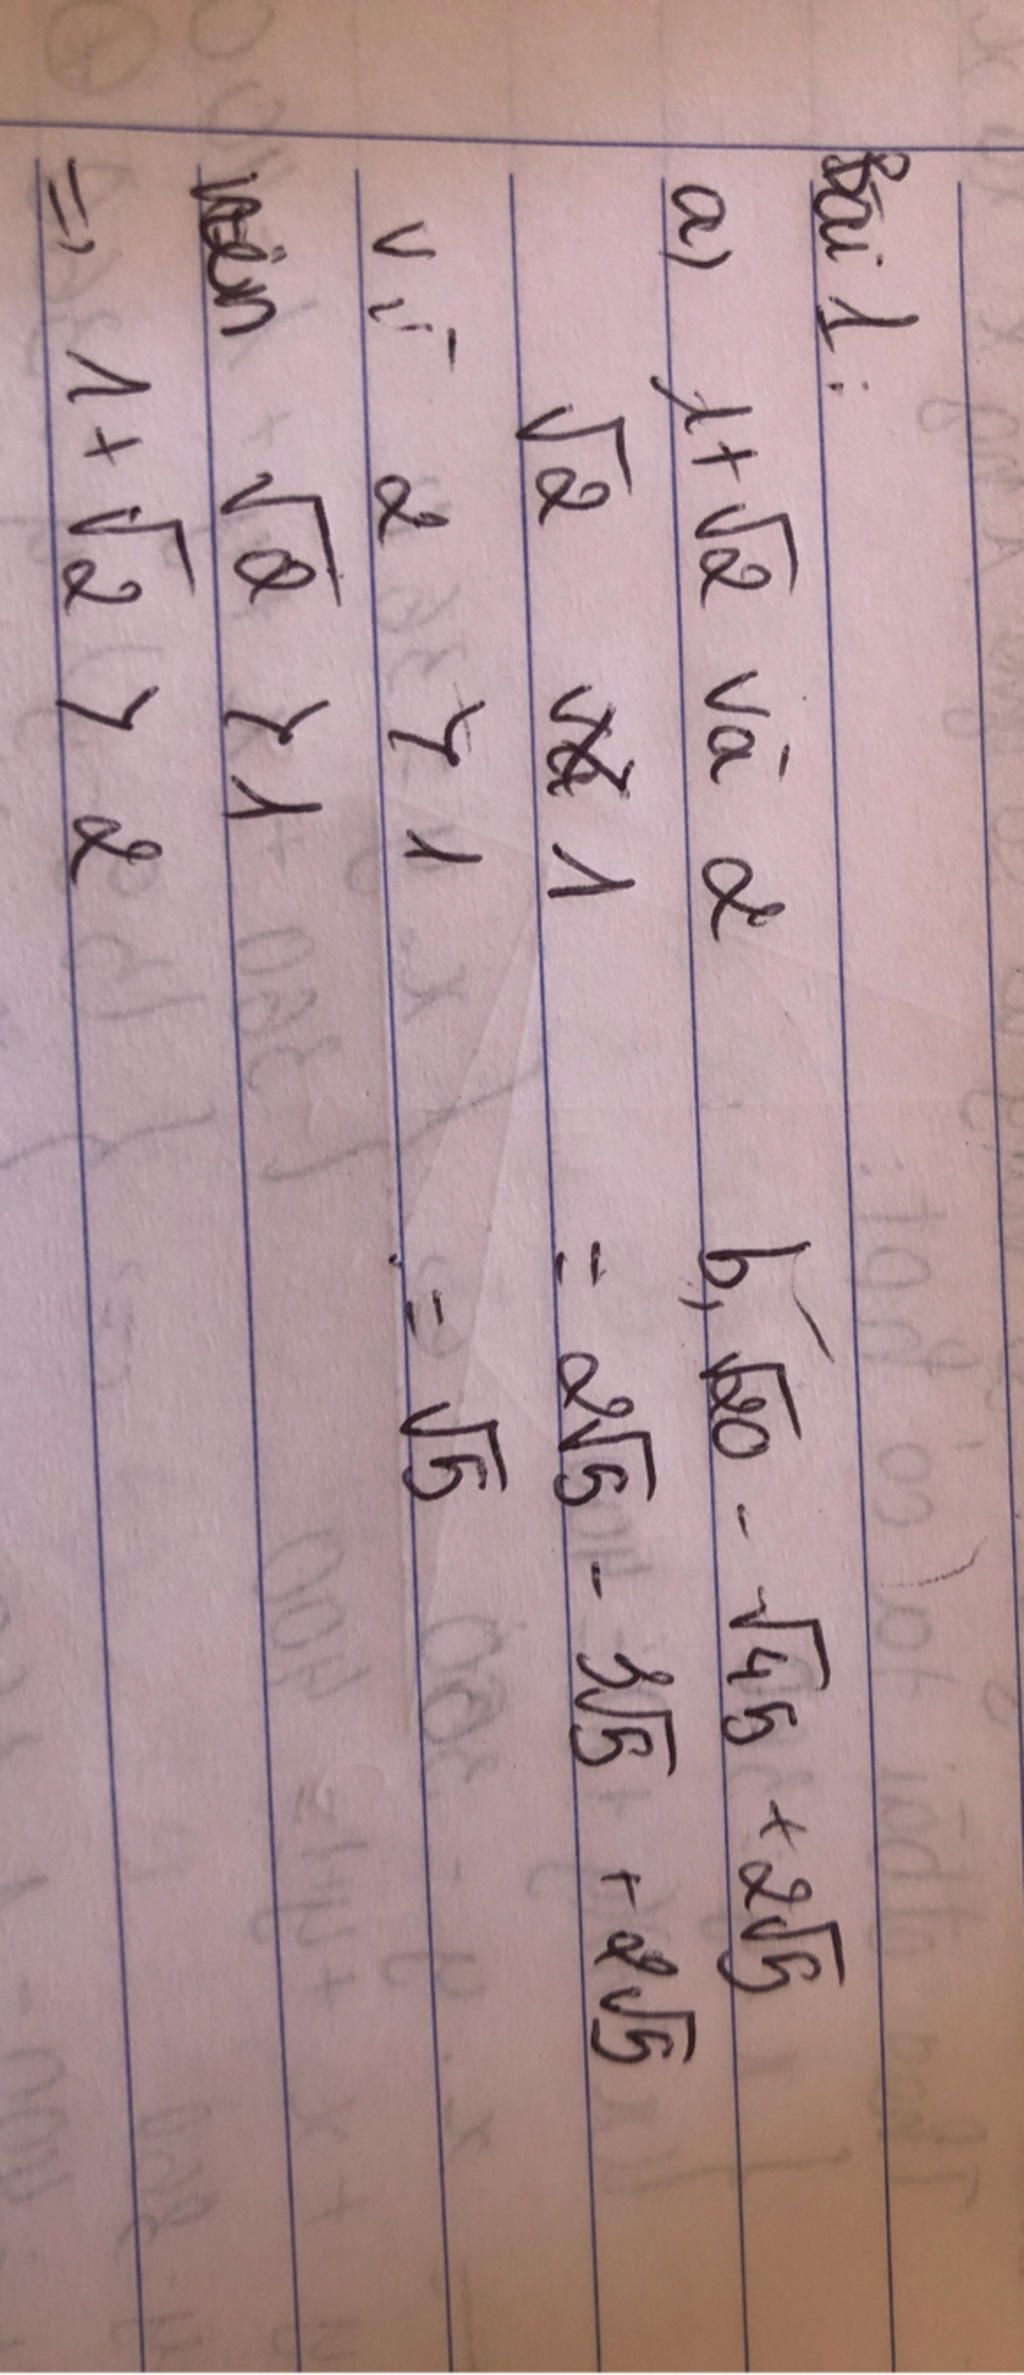 Bài 1:
a) 1+√2 và 2
√2 và 1
vì 2 > 1
nên √2 > 1
=> 1+√2 > 2
b, √20 - √45 + 2√5
= 2√5 - 3√5 + 2√5
= √5